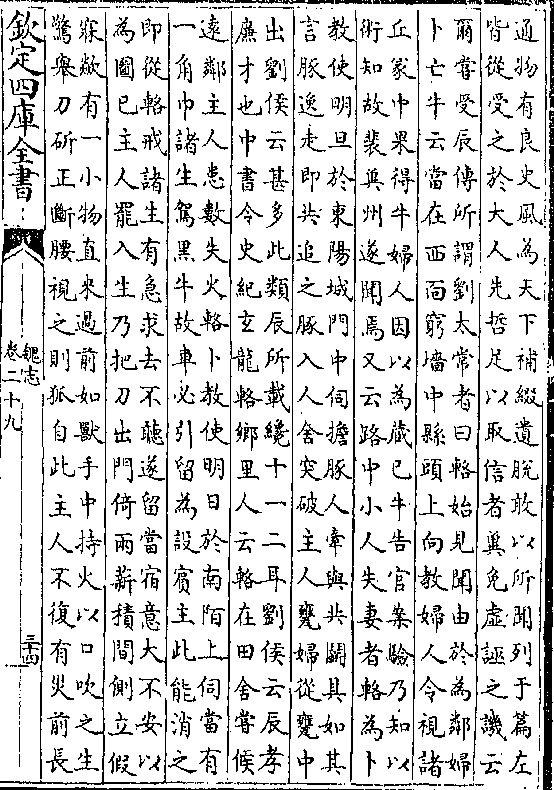 通物有良史風為天下補綴遺脫敢以所聞列于篇左
皆從受之於大人先哲足以取信者冀免虛誣之譏云
爾嘗受辰傳所謂劉太常者曰輅始見聞由於為鄰婦
卜亡牛云當在西面窮墻中縣頭上向教婦人令視諸
丘冢中果得牛婦人因以為藏已牛告官案驗乃知以
術知故裴冀州遂聞焉又云路中小人失妻者輅為卜
教使明旦於東陽城門中伺擔豚人牽與共鬭具如其
言豚逸走即共追之豚入人舍突破主人甕婦從甕中
出劉侯云甚多此類辰所載纔十一二耳劉侯云辰孝
廉才也中書令史紀玄龍輅鄉里人云輅在田舍嘗候
遠鄰主人患數失火輅卜教使明日於南陌上伺當有
一角巾諸生駕黑牛故車必引留為設賓主此能消之
即從輅戒諸生有急求去不聽遂留當宿意大不安以
為圖已主人罷入生乃把刀出門倚兩薪積間側立假
寐欻有一小物直來過前如獸手中持火以口吹之生
驚舉刀斫正斷腰視之則狐自此主人不復有災前長
欽定四庫全書
魏志
卷二十九
三十四